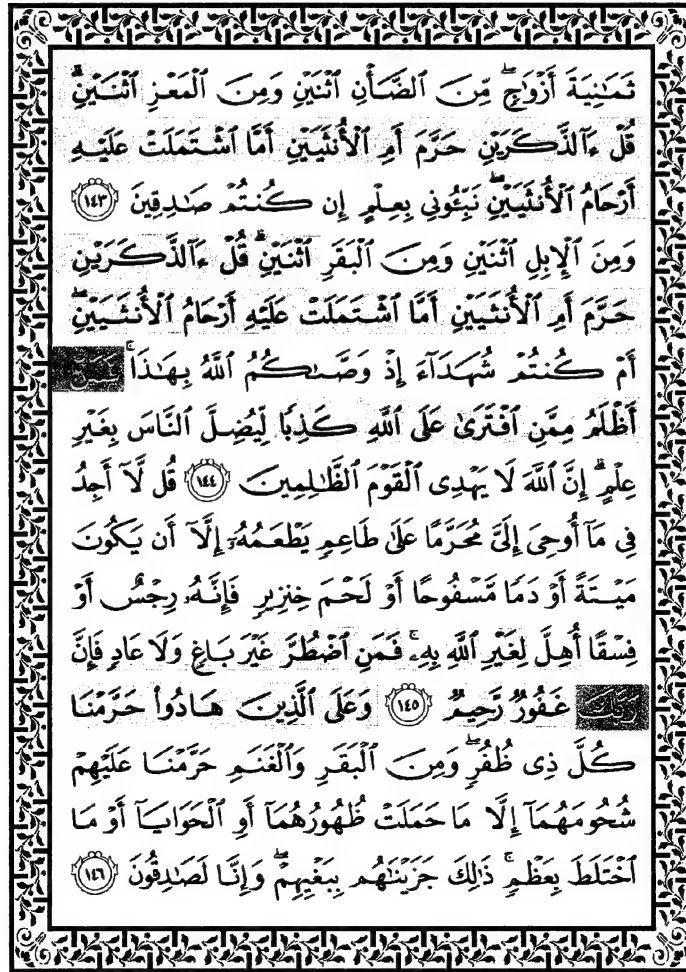 ثَمَـٰنِيَةَ أَزْوَٰجٍ ۖ مِّنَ ٱلضَّأْنِ ٱثْنَيْنِ وَمِنَ ٱلْمَعْزِ ٱثْنَيْنِ ۗ
قُلْ ءَآلذَّكَرَيْنِ حَرَّمَ أَمِ ٱلْأُنثَيَيْنِ أَمَّا ٱشْتَمَلَتْ عَلَيْهِ
أَرْحَامُ ٱلْأُنثَيَيْنِ ۖ نَبِّـُٔونِى بِعِلْمٍ إِن كُنتُمْ صَـٰدِقِينَ ١٤٣
وَمِنَ ٱلْإِبِلِ ٱثْنَيْنِ وَمِنَ ٱلْبَقَرِ ٱثْنَيْنِ ۗ قُلْ ءَآلذَّكَرَيْنِ
حَرَّمَ أَمِ ٱلْأُنثَيَيْنِ أَمَّا ٱشْتَمَلَتْ عَلَيْهِ أَرْحَامُ ٱلْأُنثَيَيْنِ ۖ
أَمْ كُنتُمْ شُهَدَآءَ إِذْ وَصَّىٰكُمُ ٱللَّهُ بِهَـٰذَا ۚ فَمَنْ
أَظْلَمُ مِمَّنِ ٱفْتَرَىٰ عَلَى ٱللَّهِ كَذِبًا لِّيُضِلَّ ٱلنَّاسَ بِغَيْرِ
عِلْمٍ ۗ إِنَّ ٱللَّهَ لَا يَهْدِى ٱلْقَوْمَ ٱلظَّـٰلِمِينَ ١٤٤ قُل لَّآ أَجِدُ
فِى مَآ أُوحِىَ إِلَىَّ مُحَرَّمًا عَلَىٰ طَاعِمٍ يَطْعَمُهُۥٓ إِلَّآ أَن يَكُونَ
مَيْتَةً أَوْ دَمًا مَّسْفُوحًا أَوْ لَحْمَ خِنزِيرٍ فَإِنَّهُۥ رِجْسٌ أَوْ
فِسْقًا أُهِلَّ لِغَيْرِ ٱللَّهِ بِهِۦ ۚ فَمَنِ ٱضْطُرَّ غَيْرَ بَاغٍ وَلَا عَادٍ فَإِنَّ
رَبَّكَ غَفُورٌ رَّحِيمٌ ١٤٥ وَعَلَى ٱلَّذِينَ هَادُوا۟ حَرَّمْنَا
كُلَّ ذِى ظُفُرٍ ۖ وَمِنَ ٱلْبَقَرِ وَٱلْغَنَمِ حَرَّمْنَا عَلَيْهِمْ
شُحُومَهُمَآ إِلَّا مَا حَمَلَتْ ظُهُورُهُمَآ أَوِ ٱلْحَوَايَآ أَوْ مَا
ٱخْتَلَطَ بِعَظْمٍ ۚ ذَٰلِكَ جَزَيْنَـٰهُم بِبَغْيِهِمْ ۖ وَإِنَّا لَصَـٰدِقُونَ ١٤٦